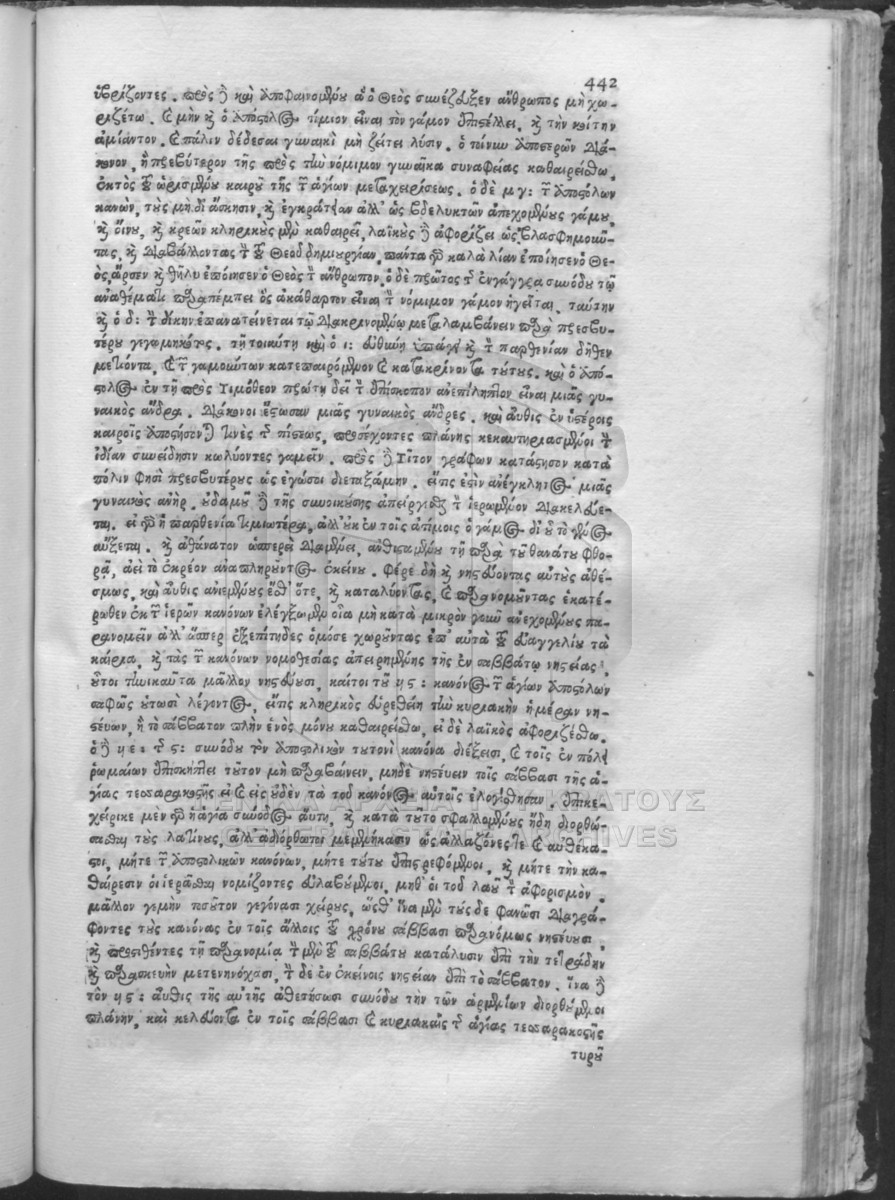 442
ὑβρίζοντες. πρὸς δὲ καὶ ἀποφαινομένου ἃ ὁ Θεὸς συνέζευξεν ἄνθρωπος μὴ χω-
ριζέτω. καὶ μὴν καὶ ὁ ἀπόστολος τίμιον εἶναι τὸν γάμον ἐπιστέλλει, καὶ τὴν κοίτην
ἀμίαντον. καὶ πάλιν δέδεσαι γυναικὶ μὴ ζήτει λύσιν. ὁ τοίνυν ἀποστερῶν διά-
κονον, ἢ πρεσβύτερον τῆς πρὸς τὴν νόμιμον γυναῖκα συναφείας καθαιρείσθω,
ἐκτὸς τοῦ ὡρισμένου καιροῦ τῆς τῶν ἁγίων μεταχειρίσεως. ὁ δὲ μγ: τῶν ἀποστόλων
κανών, τοὺς μὴ δι' ἄσκησιν, καὶ ἐγκράτειαν ἀλλ' ὡς βδελυκτῶν ἀπεχομένους γάμου
καὶ οἴνου, καὶ κρεῶν κληρικοὺς μὲν καθαιρεῖ, λαϊκοὺς δὲ ἀφορίζει ὡς βλασφημοῦν-
τας, καὶ διαβάλλοντας τὴν τοῦ Θεοῦ δημιουργίαν, πάντα γὰρ καλὰ λίαν ἐποίησεν ὁ Θε-
ός, ἄρσεν καὶ θῆλυ ἐποίησεν ὁ Θεὸς τὸν ἄνθρωπον. ὁ δὲ πρῶτος τῆς ἐν γάγγρα συνόδου τῷ
ἀναθέματι παραπέμπει ὃς ἀκάθαρτον εἶναι τὸν νόμιμον γάμον ἡγεῖται. ταύτην
καὶ ὁ δ: τὴν δίκην ἐπανατείνεται τῷ διακρινομένῳ μεταλαμβάνειν παρὰ πρεσβυ-
τέρου γεγαμηκότος. τῇ τοιαύτῃ καὶ ὁ ι: εὐθύνῃ ὑπάγει καὶ τὸν παρθενίαν δῆθεν
μετιόντα, καὶ τῶν γαμούντων κατεπαιρόμενον καὶ κατακρίνοντα τούτους. καὶ ὁ ἀπό-
στολος ἐν τῇ πρὸς Τιμόθεον πρώτῃ δεῖ τὸν ἐπίσκοπον ἀνεπίληπτον εἶναι μιᾶς γυ-
ναικὸς ἄνδρα. διάκονοι ἔστωσαν μιᾶς γυναικὸς ἄνδρες. καὶ αὖθις ἐν ὑστέροις
καιροῖς ἀποστήσονταί τινὲς τῆς πίστεως, προσέχοντες πλάνης κεκαυτηριασμένοι τὴν
ἰδίαν συνείδησιν κωλύοντες γαμεῖν. πρὸς δὲ Τίτον γράφων κατάστησον κατὰ
πόλιν φησὶ πρεσβυτέρους ὡς ἐγώ σοι διεταξάμην. εἴ τις ἐστὶν ἀνέγκλητος μιᾶς
γυναικὸς ἀνήρ. οὐδαμοῦ δὲ τῆς συνοικούσης ἀπείργεσθαι τὸν ἱερωμένον διακελεύε-
ται. εἰ γὰρ ἡ παρθενία τιμιωτέρα, ἀλλ' οὐκ ἐν τοῖς ἀτίμοις ὁ γάμος δι' οὗ τὸ γένος
αὔξεται. καὶ ἀθάνατον ὡσπερεὶ διαμένει, ἀνθισταμένου τῇ παρὰ τοῦ θανάτου φθο-
ρᾷ, ἀεὶ τὸ ἐκρέον ἀναπληροῦντος ἐκείνου. Φέρε δὴ καὶ νηστεύοντας αὐτοὺς ἀθέ-
σμως, καὶ αὖθις ἀνιεμένους ἔσθ' ὅτε, καὶ καταλύοντας, καὶ παρανομοῦντας ἑκατέ-
ρωθεν ἐκ τῶν ἱερῶν κανόνων ἐλέγξωμεν οἷα μὴ κατὰ μικρὸν γοῦν ἀνεχομένους πα-
ρανομεῖν ἀλλ' ὥσπερ ἐξεπίτηδες ὁμόσε χωροῦντας ἐπ' αὐτὰ τοῦ εὐαγγελίου τὰ
καίρια, καὶ τὰς τῶν κανόνων νομοθεσίας ἀπειρημένης τῆς ἐν σαββάτῳ νηστείας,
οὗτοι τηνικαῦτα μᾶλλον νηστεύουσι, καίτοι τοῦ ξς: κανόνος τῶν ἁγίων ἀποστόλων
σαφῶς οὑτωσὶ λέγοντος, εἴ τις κληρικὸς εὑρεθείη τὴν κυριακὴν ἡμέραν νη-
στεύων, ἢ τὸ σάββατον πλὴν ἑνὸς μόνου καθαιρείσθω, εἰ δὲ λαϊκὸς ἀφοριζέσθω.
ὁ δὲ νε: τῆς ς: συνόδου τὸν ἀποστολικὸν τουτονὶ κανόνα διέξεισι, καὶ τοῖς ἐν πόλει
ῥωμαίων ἐπισκήπτει τοῦτον μὴ παραβαίνειν, μηδὲ νηστεύειν τοῖς σάββασι τῆς ἁ-
γίας τεσσαρακοστῆς εἰ καὶ εἰς οὐδὲν τὰ τοῦ κανόνος αὐτοῖς ἐλογίσθησαν. ἐπικε-
χείρικε μὲν γὰρ ἡ ἁγία σύνοδος αὕτη, καὶ κατὰ τοῦτο σφαλλομένους ἤδη διορθώ-
σασθαι τοὺς λατίνους, ἀλλ' ἀδιόρθωτοι μεμενήκασιν ὡς ἀλλαζόνες τε καὶ αὐθέκα-
στοι, μήτε τῶν ἀποστολικῶν κανόνων, μήτε τούτου ἐπιστρεφόμενοι. καὶ μήτε τὴν κα-
θαίρεσιν οἱ ἱερᾶσθαι νομίζοντες εὐλαβούμενοι, μήθ' οἱ τοῦ λαοῦ τὸν ἀφορισμόν.
μᾶλλον γεμὴν τοσοῦτον γεγόνασι χείρους, ὥσθ' ἵνα μὲν τούσδε φανῶσι διαγρά-
φοντες τοὺς κανόνας ἐν τοῖς ἄλλοις τοῦ χρόνου σάββασι παρανόμως νηστεύουσι,
καὶ προστιθέντες τῇ παρανομίᾳ τὴν μὲν τοῦ σαββάτου κατάλυσιν ἐπὶ τὴν τετράδην
καὶ παρασκευὴν μετενηνόχασι, τὴν δὲ ἐν ἐκείνοις νηστείαν ἐπὶ τὸ σάββατον. ἵνα δὲ
τὸν νς: αὖθις τῆς αὐτῆς ἀθετήσωσι συνόδου τὴν τῶν ἀρμενίων διορθούμενοι
πλάνην, καὶ κελεύοντα ἐν τοῖς σάββασι καὶ κυριακαῖς τῆς ἁγίας τεσσαρακοστῆς
τυροῦ
ΓΕΝΙΚΑ ΑΡΧΕΙΑ ΤΟΥ ΚΡΑΤΟΥΣ
GENERAL STATE ARCHIVES